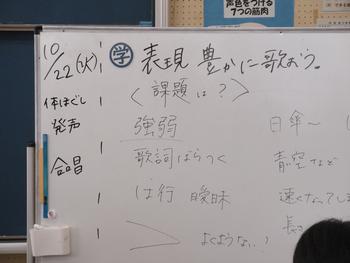 声色をつける
7つの筋肉
10/22(火)
学 表現豊かに歌おう。
体ほぐし
発声
合唱
〈課題は?〉
強弱 日傘〜(
歌詞ばらつく 青空など
は行 曖昧 速くなってしま
長さ
よくようない!